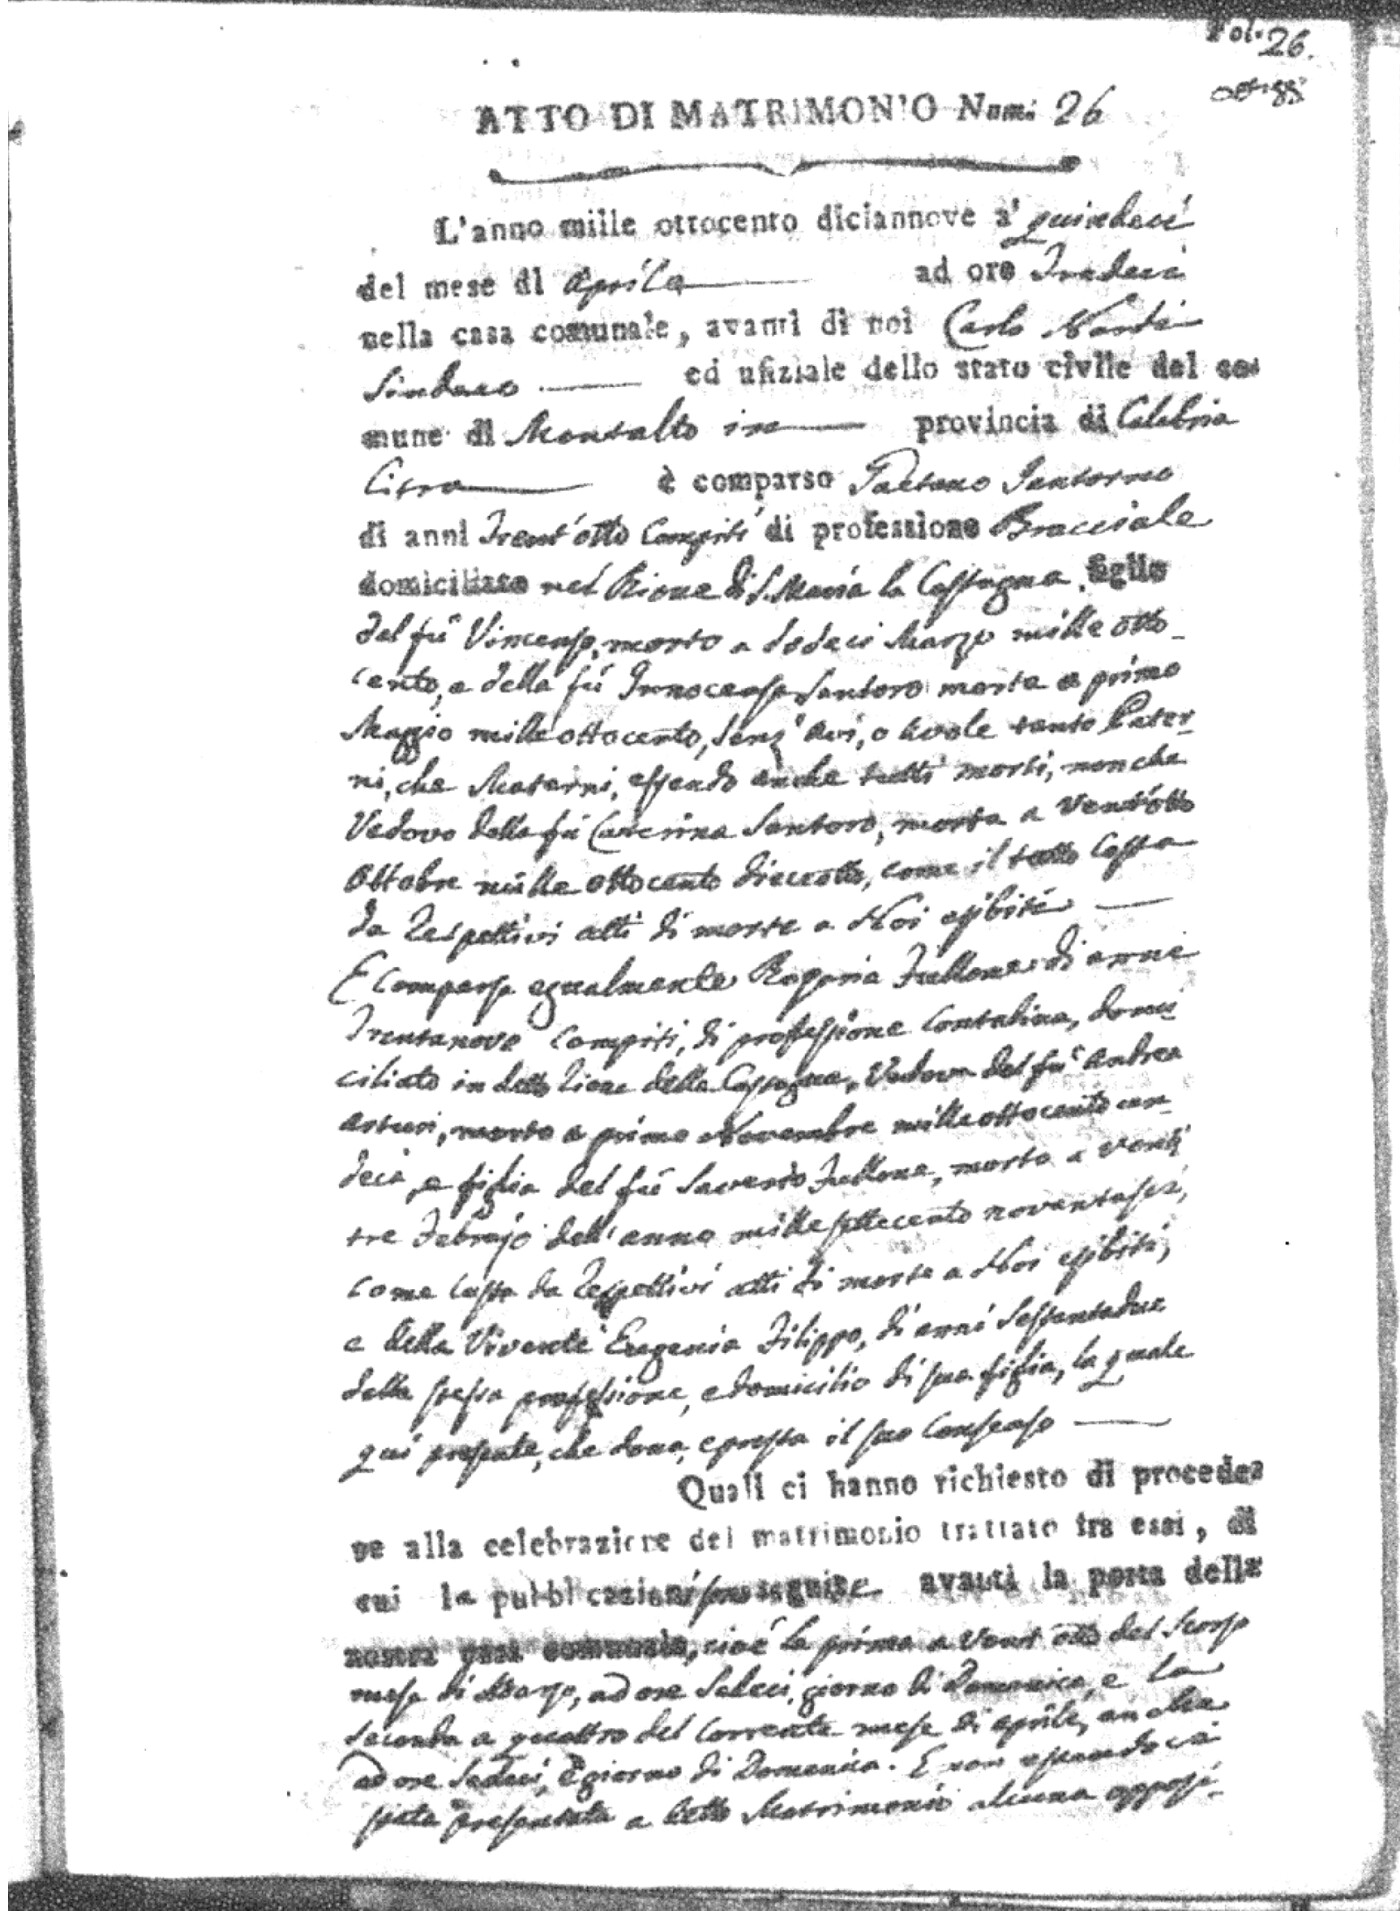 Fol. 26.
ATTO DI MATRIMONIO Num. 26
L'anno mille ottocento diciannove a' quindeci
del mese di Aprile ad ore Tredeci
nella casa comunale, avanti di noi Carlo Nardi
Sindaco ed ufiziale dello stato civile del co-
mune di Montalto in provincia di Calabria
Citra è comparso Gaetano Santorno
di anni Trent'otto Compiti di professione Bracciale
domiciliato nel Rione di S. Maria la Castagna, figlio
del fù Vincenzo, morto a dodeci Marzo mille otto-
cento, e della fù Innocenza Santoro morta a primo
Maggio mille ottocento, senz'Avi, o Avole tanto Pater-
ni, che Materni, essendo anche tutti morti, nonche
Vedovo della fù Caterina Santoro, morta a Vent'otto
Ottobre mille ottocento dieceotto, come il tutto Costa
da respettivi atti di morte a Noi esibiti
E comparsa egualmente Rosaria Fullone di anni
Trentanove Compiti, di professione Contadina, domi-
ciliata in detto Rione della Castagna, Vedova del fù Andrea
Arturi, morto a primo Novembre mille ottocento un-
deci, e figlia del fù Saverio Fullone, morto a venti
tre Febrajo dell'anno mille settecento novantasei,
come costa da respettivi atti di morte a Noi esibiti,
e della Vivente Eugenia Filippo, di anni Sessantadue
della stessa professione, e domicilio di sua figlia, la quale
qui presente, che dona, e presta il suo Consenso
Quali ci hanno richiesto di procede-
re alla celebrazione del matrimonio trattato fra essi, di
cui le pubblicazioni sono seguite avanti la porta della
nostra casa comunale, cioè la prima a Vent'otto del scorso
mese di Marzo, ad ore Sedeci, giorno di Domenica, e la
seconda a quattro del corrente mese di Aprile, anche
ad ore Sedeci, e giorno di Domenica. E non essendoci
stata presentata a detto Matrimonio alcuna opposi-